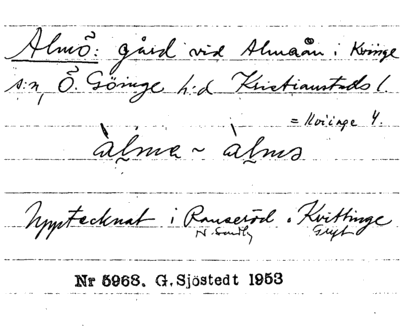 Almö: gård vid Almaån i Kvinge
s:n, Ö. Göinge h:d Kristianstads l.
= Kviinge 4.
àlma ~ àlmə
Upptecknat i Ranseröd o Kvittinge
N. Sandby Gryt
Nr 5968. G. Sjöstedt 1953